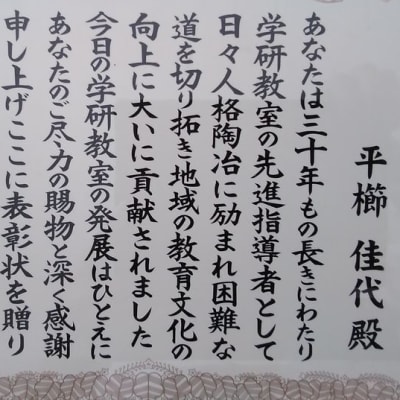 平櫛 佳代 殿
あなたは三十年もの長きにわたり
学研教室の先進指導者として
日々人格陶冶に励まれ困難な
道を切り拓き地域の教育文化の
向上に大いに貢献されました
今日の学研教室の発展はひとえに
あなたのご尽力の賜物と深く感謝
申し上げここに表彰状を贈り